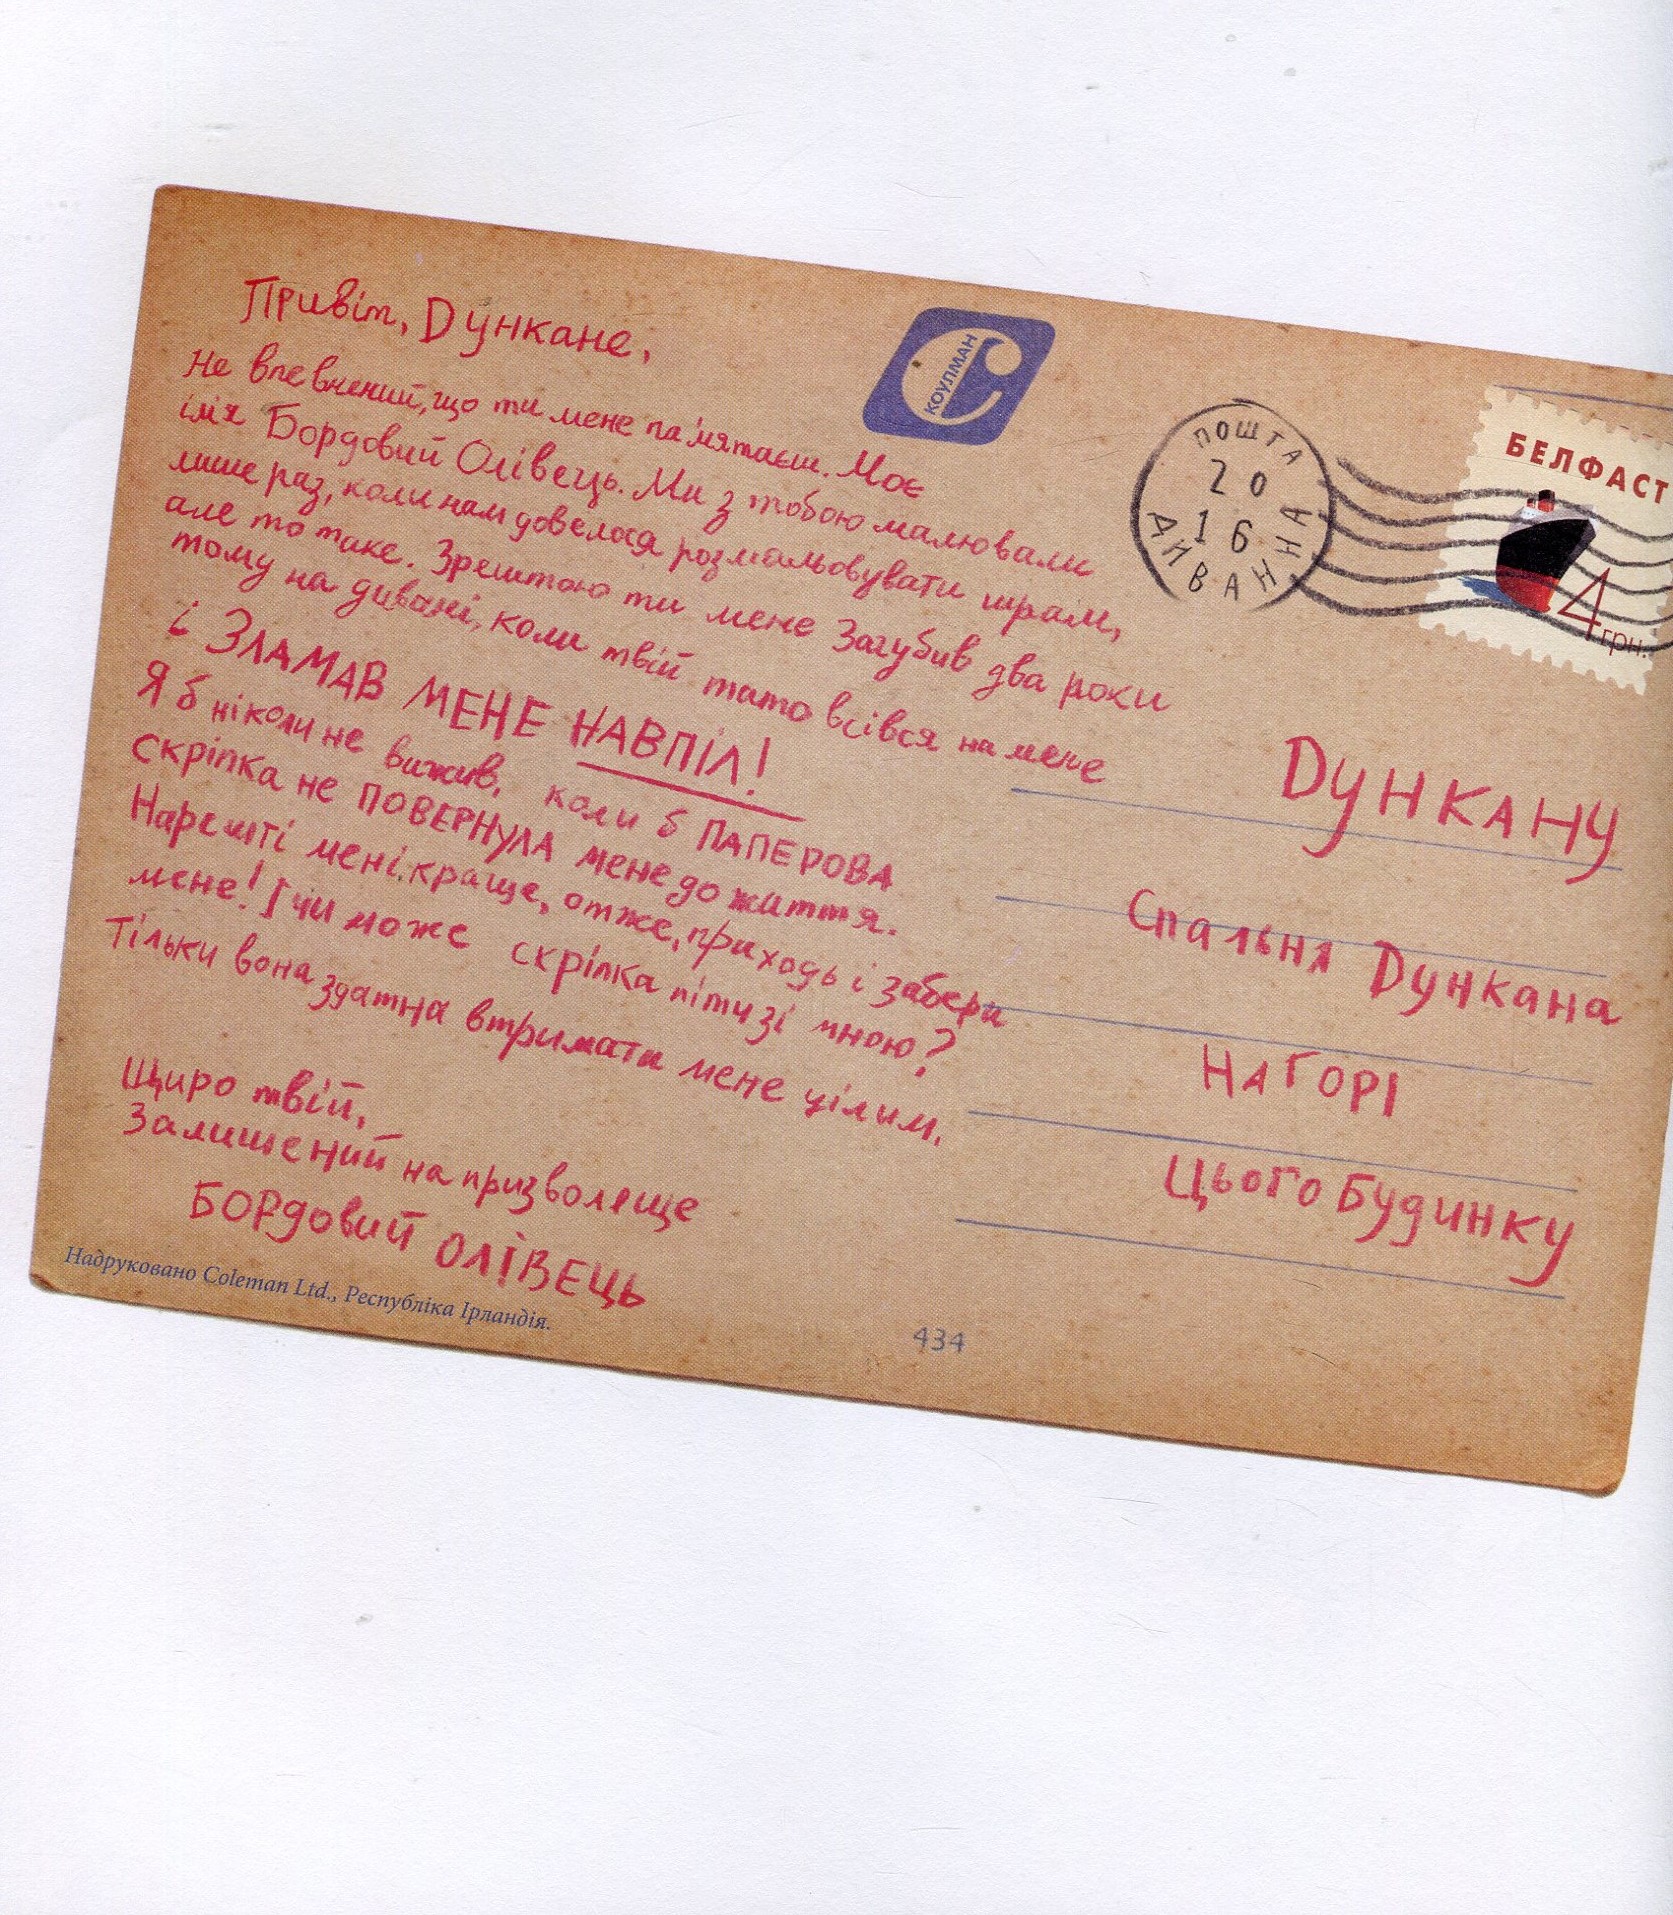 Привіт, Дункане,
Не впевнений, що ти мене па'мятаєш. Моє
ім'я Бордовий Олівець. Ми з тобою малювали
лише раз, коли нам довелося розмальовувати шрам,
але то таке. Зрештою ти мене Загубив два роки
тому на дивані, коли твій тато всівся на мене
і ЗЛАМАВ МЕНЕ НАВПІЛ!
Я б ніколи не вижив, коли б ПАПЕРОВА
скріпка не ПОВЕРНУЛА мене до життя.
Нарешті мені краще, отже, приходь і забери
мене! І чи може скріпка піти зі мною?
Тільки вона здатна втримати мене цілим.
Щиро твій,
Залишений на призволяще
БОРДОВИЙ ОЛІВЕЦЬ
Надруковано Coleman Ltd., Республіка Ірландія.
434
КОУЛМАН
ПОШТА
20
16
ДИВАННА
БЕЛФАСТ
4 грн.
Дункану
Спальня Дункана
Нагорі
Цього Будинку